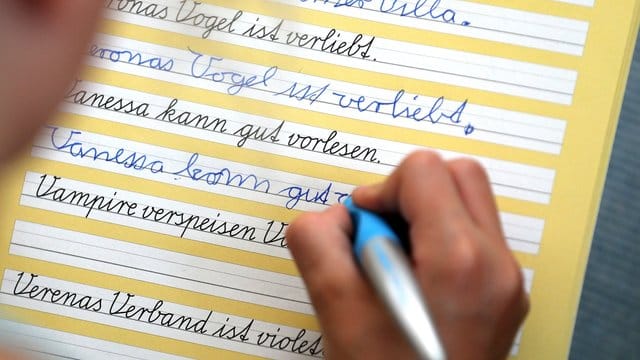 Villa.
Vogel ist verliebt.
Vogel ist verliebt.
Vanessa kann gut vorlesen.
Vanessa kann gut
Vampire verspeisen
Verenas Verband ist violett